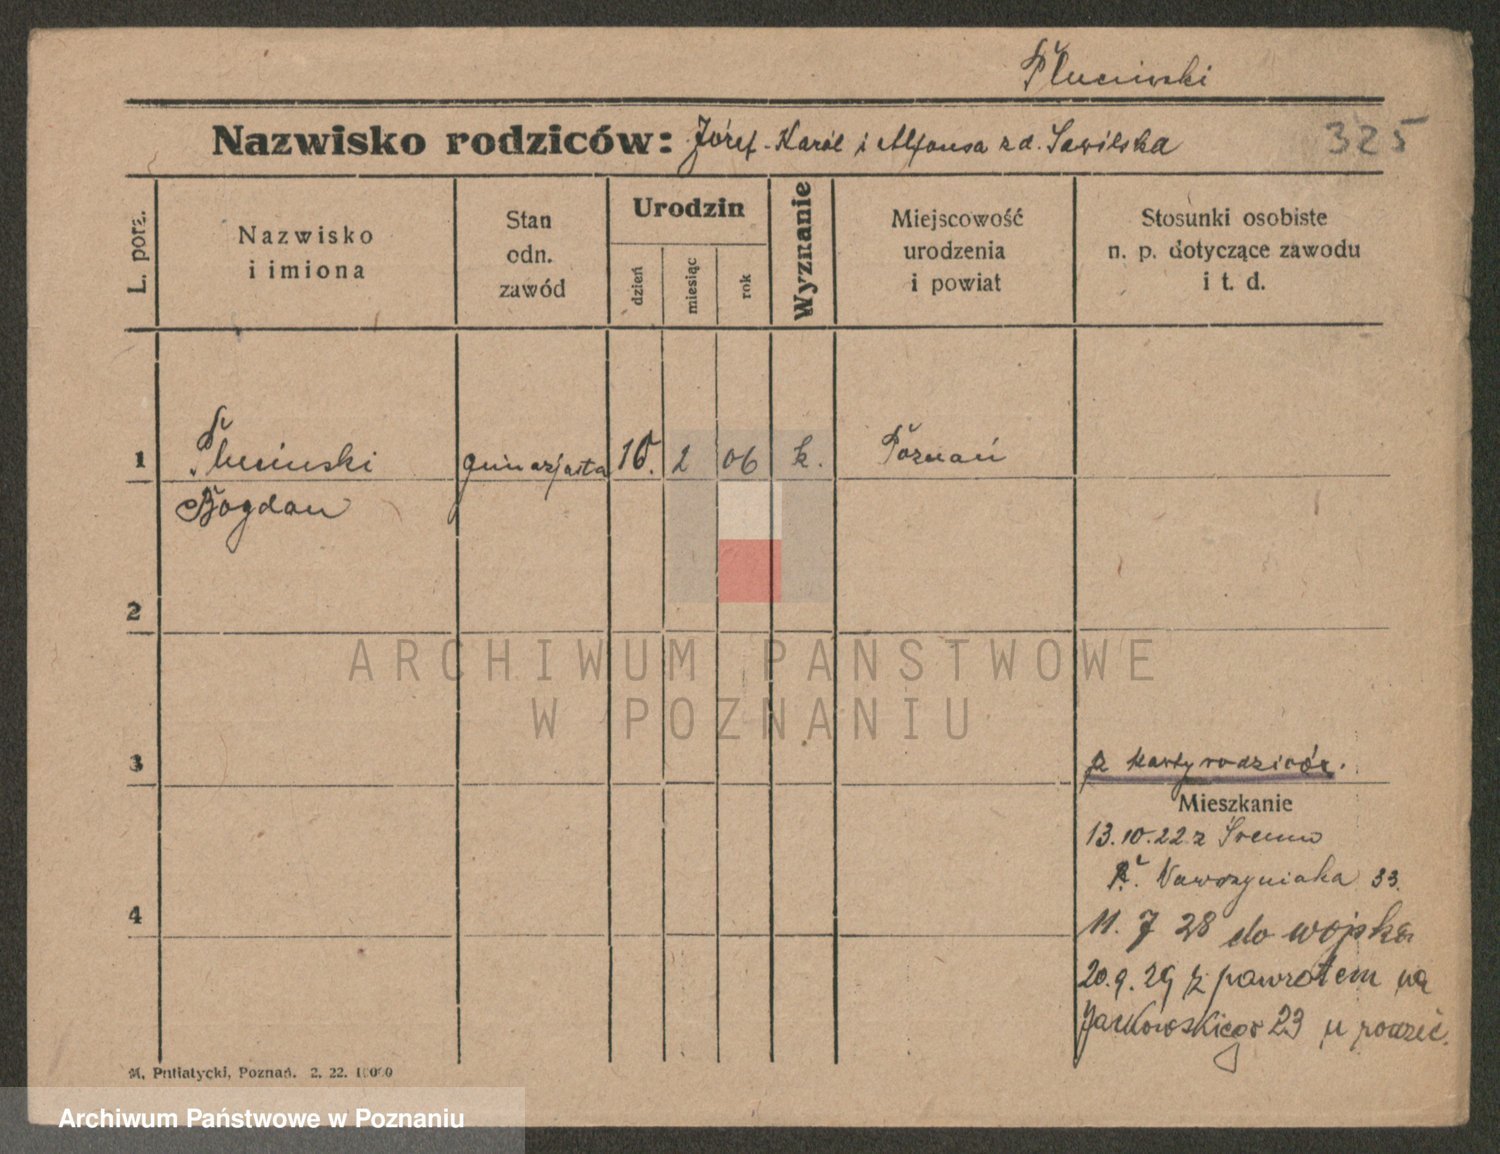 Pluciński
Nazwisko rodziców: Józef-Karól i Alfonsa z d. Sawilska
325
L. porz.
Nazwisko
i imiona
Stan
odn.
zawód
Urodzin
dzień
miesiąc
rok
Wyznanie
Miejscowość
urodzenia
i powiat
Stosunki osobiste
n. p. dotyczące zawodu
i t. d.
1 Pluciński gimnazjasta 16. 2 06 k. Poznań
Bogdan
2
3
z karty rodziców.
Mieszkanie
13.10.22 z Śremu
Wawrzyniaka 33.
4
11. 7 28 do wojska
20.9.29 z powrotem na
Jackowskiego 23 u rodzić.
M. Putiatycki, Poznań. 2. 22.
ARCHIWUM PAŃSTWOWE
W POZNANIU
Archiwum Państwowe w Poznaniu